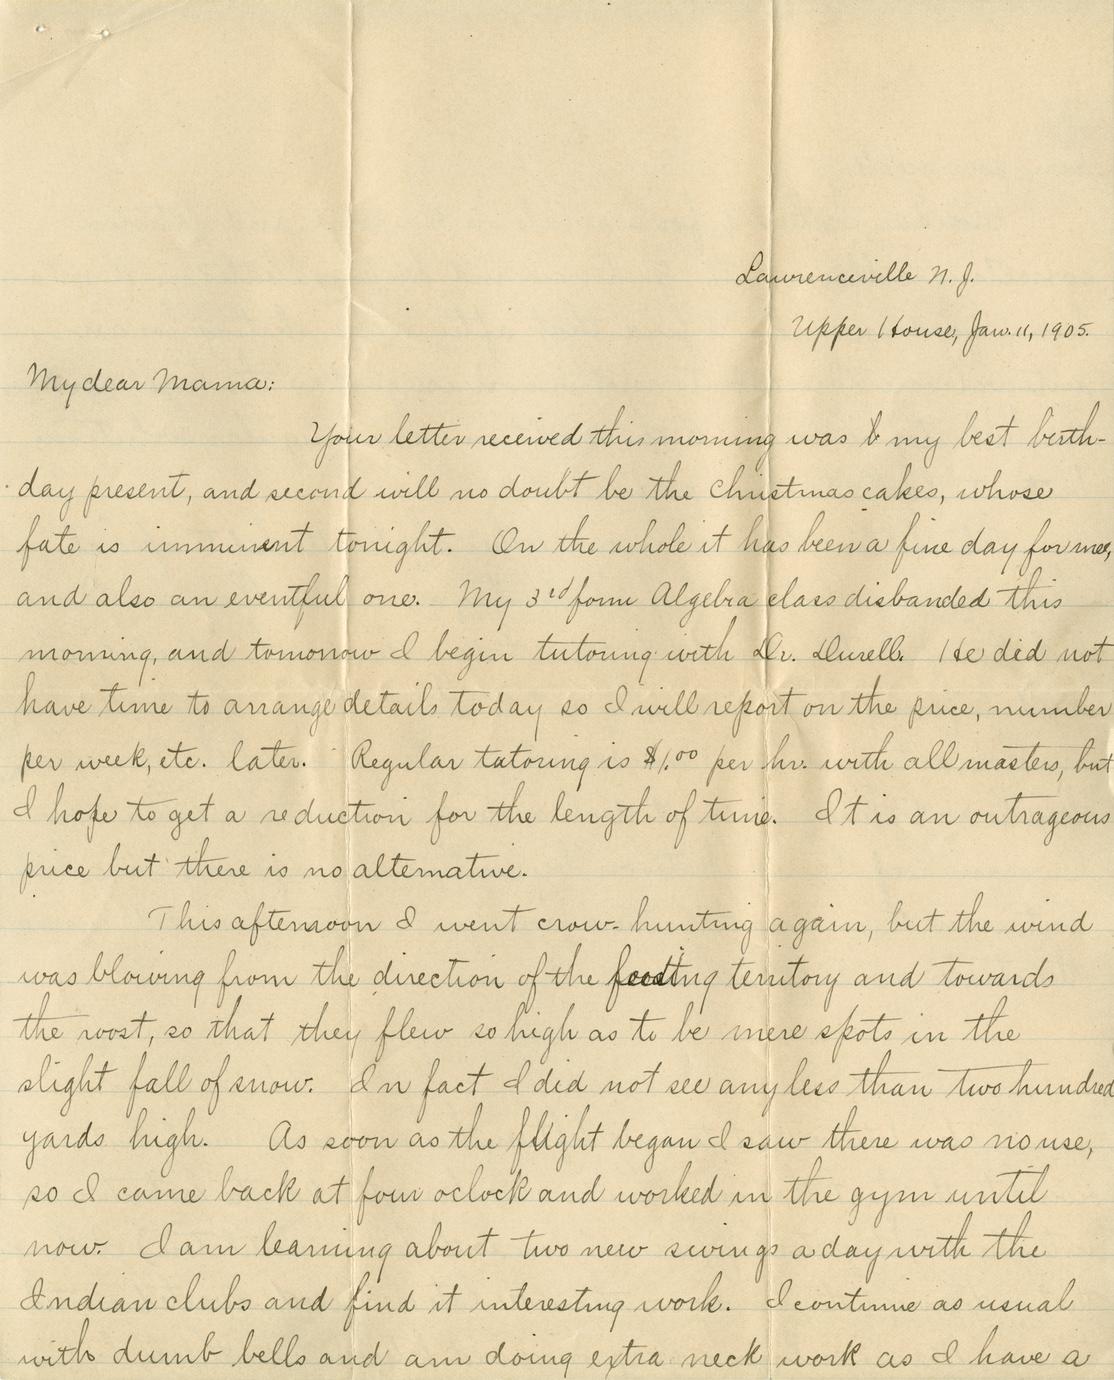 Lawrenceville N. J.
Upper House, Jan. 11, 1905.
My dear Mama:
Your letter received this morning was my best birth-
day present, and second will no doubt be the Christmas cakes, whose
fate is imminent tonight. On the whole it has been a fine day for me,
and also an eventful one. My 3rd form Algebra class disbanded this
morning, and tomorrow I begin tutoring with Dr. Durell. He did not
have time to arrange details today so I will report on the price, number
per week, etc. later. Regular tutoring is $1.00 per hr. with all masters, but
I hope to get a reduction for the length of time. It is an outrageous
price but there is no alternative.
This afternoon I went crow-hunting again, but the wind
was blowing from the direction of the feeding territory and towards
the roost, so that they flew so high as to be mere spots in the
slight fall of snow. In fact I did not see any less than two hundred
yards high. As soon as the flight began I saw there was no use,
so I came back at four oclock and worked in the gym until
now. I am learning about two new swings a day with the
Indian clubs and find it interesting work. I continue as usual
with dumb bells and am doing extra neck work as I have a